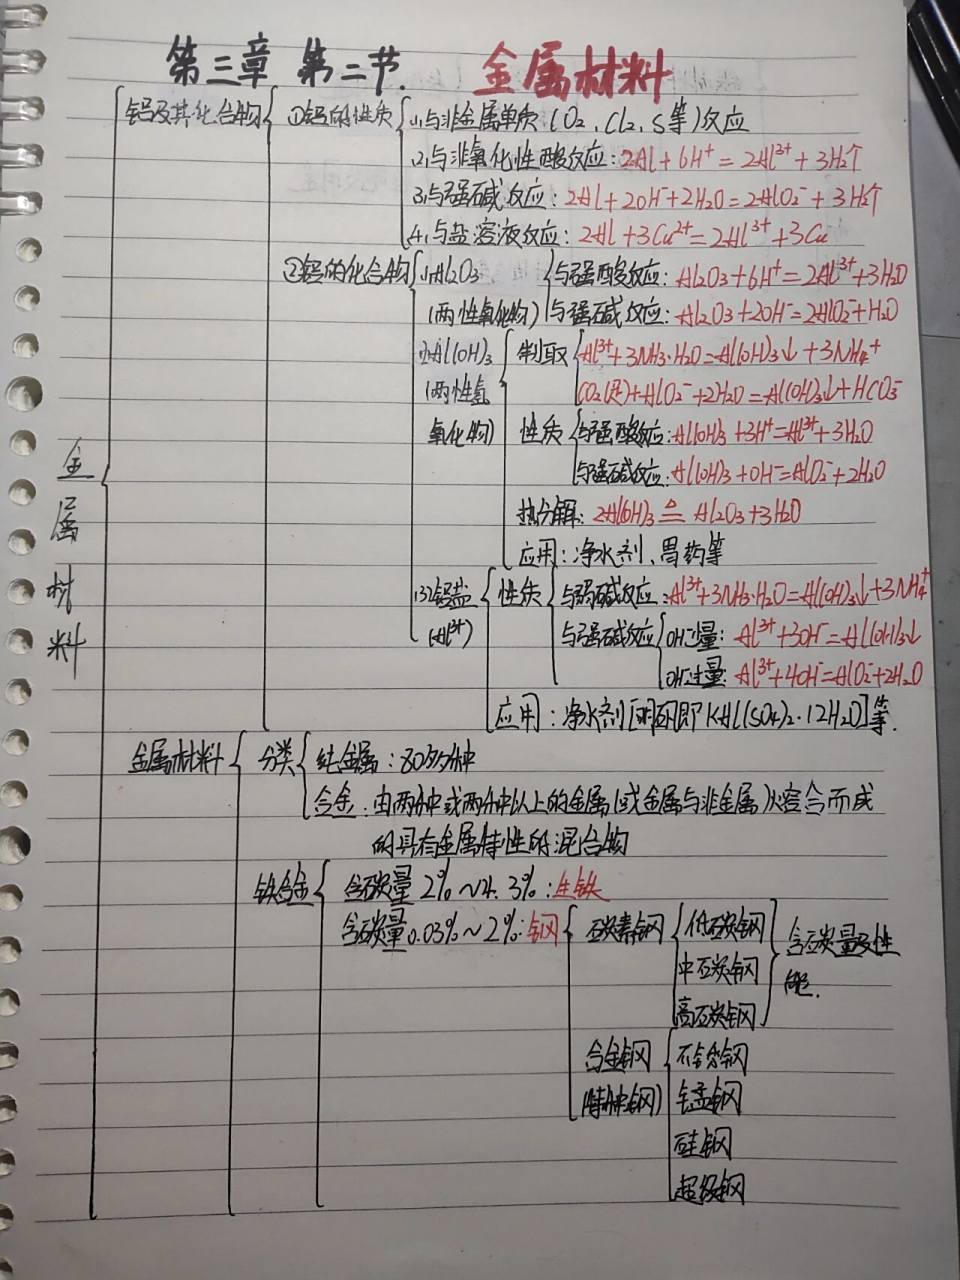 第三章 第二节. 金属材料
铝及其化合物 ①铝的性质 (1)与非金属单质(O₂、Cl₂、S等)反应
(2)与非氧化性酸反应: 2Al+6H⁺=2Al³⁺+3H₂↑
(3)与强碱反应: 2Al+2OH⁻+2H₂O=2AlO₂⁻+3H₂↑
(4)与盐溶液反应: 2Al+3Cu²⁺=2Al³⁺+3Cu
②铝的化合物 (1)Al₂O₃ 与强酸反应: Al₂O₃+6H⁺=2Al³⁺+3H₂O
(两性氧化物) 与强碱反应: Al₂O₃+2OH⁻=2AlO₂⁻+H₂O
(2)Al(OH)₃ 制取 Al³⁺+3NH₃·H₂O=Al(OH)₃↓+3NH₄⁺
(两性氢 CO₂(足)+AlO₂⁻+2H₂O=Al(OH)₃↓+HCO₃⁻
氧化物) 性质 与强酸反应: Al(OH)₃+3H⁺=Al³⁺+3H₂O
与强碱反应: Al(OH)₃+OH⁻=AlO₂⁻+2H₂O
热分解: 2Al(OH)₃ ≜ Al₂O₃+3H₂O
应用: 净水剂、胃药等
(3)铝盐 性质 与弱碱反应: Al³⁺+3NH₃·H₂O=Al(OH)₃↓+3NH₄⁺
(Al³⁺) 与强碱反应 OH⁻少量: Al³⁺+3OH⁻=Al(OH)₃↓
OH⁻过量: Al³⁺+4OH⁻=AlO₂⁻+2H₂O
应用: 净水剂[明矾即KAl(SO₄)₂·12H₂O]等.
金属材料
金属材料 分类 纯金属: 80多种
合金: 由两种或两种以上的金属(或金属与非金属)熔合而成
的具有金属特性的混合物
铁合金 含碳量2%~4.3%: 生铁
含碳量0.03%~2%: 钢 碳素钢 低碳钢 含碳量及性
中碳钢 能.
高碳钢
合金钢 不锈钢
(特种钢) 锰钢
硅钢
超级钢